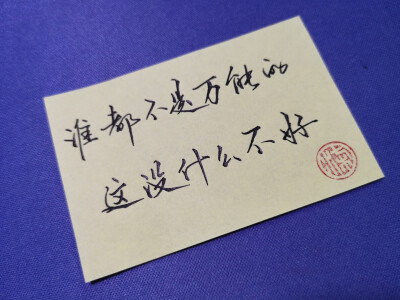 谁都不是万能的
这没什么不好